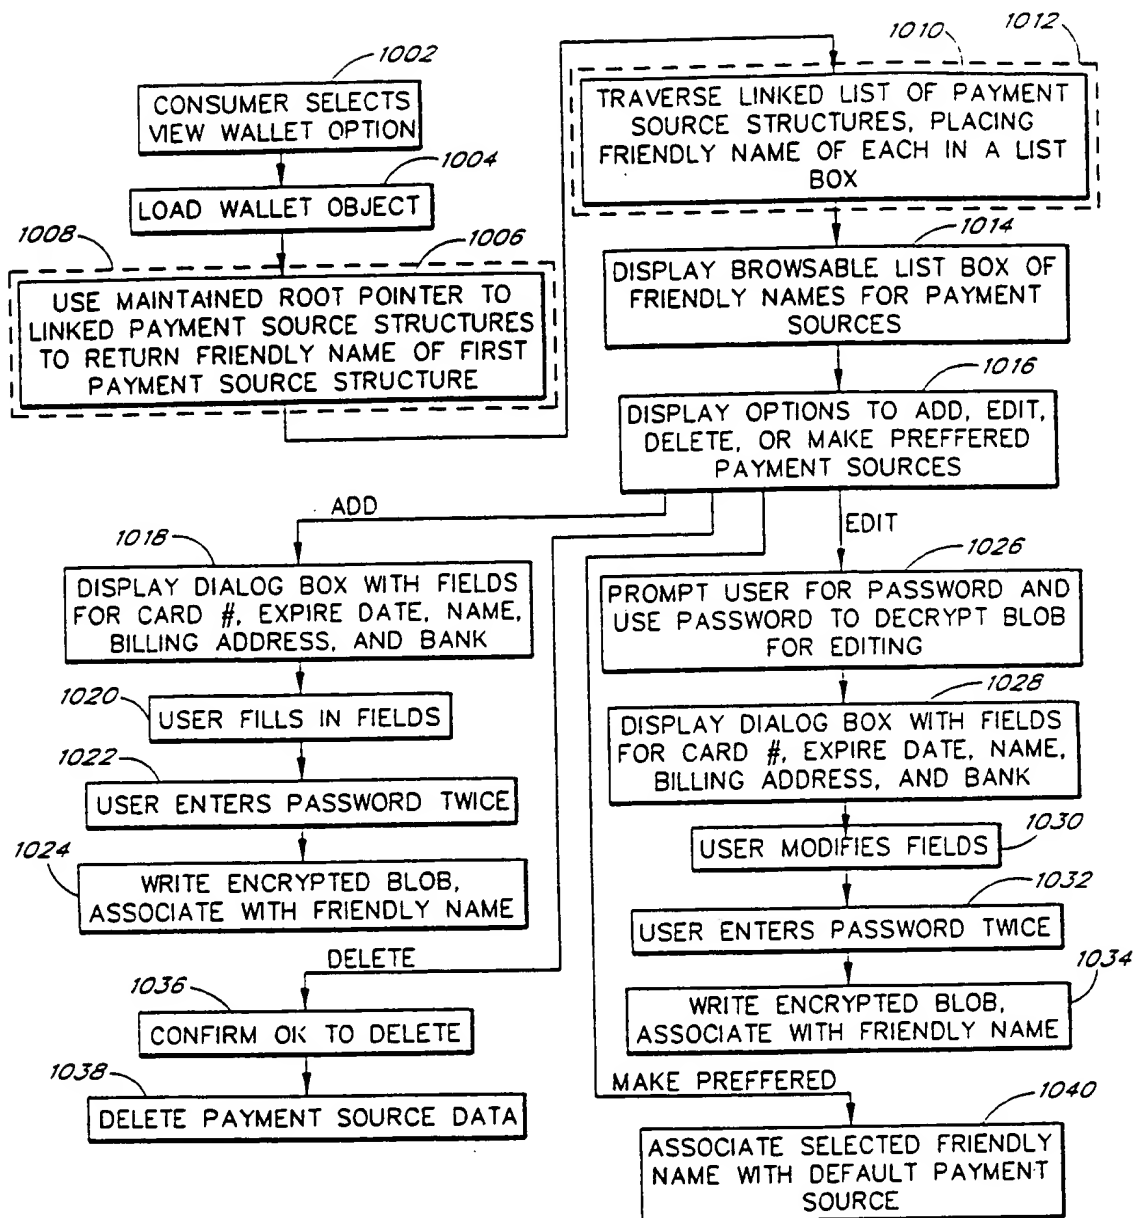 1002
CONSUMER SELECTS
VIEW WALLET OPTION
1004
LOAD WALLET OBJECT
1008
1006
USE MAINTAINED ROOT POINTER TO
LINKED PAYMENT SOURCE STRUCTURES
TO RETURN FRIENDLY NAME OF FIRST
PAYMENT SOURCE STRUCTURE
1010
1012
TRAVERSE LINKED LIST OF PAYMENT
SOURCE STRUCTURES, PLACING
FRIENDLY NAME OF EACH IN A LIST
BOX
1014
DISPLAY BROWSABLE LIST BOX OF
FRIENDLY NAMES FOR PAYMENT
SOURCES
1016
DISPLAY OPTIONS TO ADD, EDIT,
DELETE, OR MAKE PREFFERED
PAYMENT SOURCES
ADD
1018
DISPLAY DIALOG BOX WITH FIELDS
FOR CARD #, EXPIRE DATE, NAME,
BILLING ADDRESS, AND BANK
1020
USER FILLS IN FIELDS
1022
USER ENTERS PASSWORD TWICE
1024
WRITE ENCRYPTED BLOB,
ASSOCIATE WITH FRIENDLY NAME
DELETE
1036
CONFIRM OK TO DELETE
1038
DELETE PAYMENT SOURCE DATA
EDIT
1026
PROMPT USER FOR PASSWORD AND
USE PASSWORD TO DECRYPT BLOB
FOR EDITING
1028
DISPLAY DIALOG BOX WITH FIELDS
FOR CARD #, EXPIRE DATE, NAME,
BILLING ADDRESS, AND BANK
1030
USER MODIFIES FIELDS
1032
USER ENTERS PASSWORD TWICE
1034
WRITE ENCRYPTED BLOB,
ASSOCIATE WITH FRIENDLY NAME
MAKE PREFFERED
1040
ASSOCIATE SELECTED FRIENDLY
NAME WITH DEFAULT PAYMENT
SOURCE